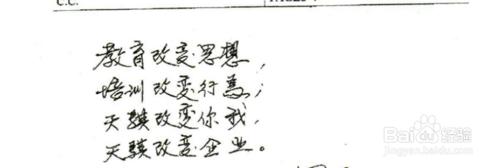 C.C.
教育改变思想，
培训改变行為；
天骥改变你我，
天骥改变企业。
Baidu 经验
jingyan.baidu.com